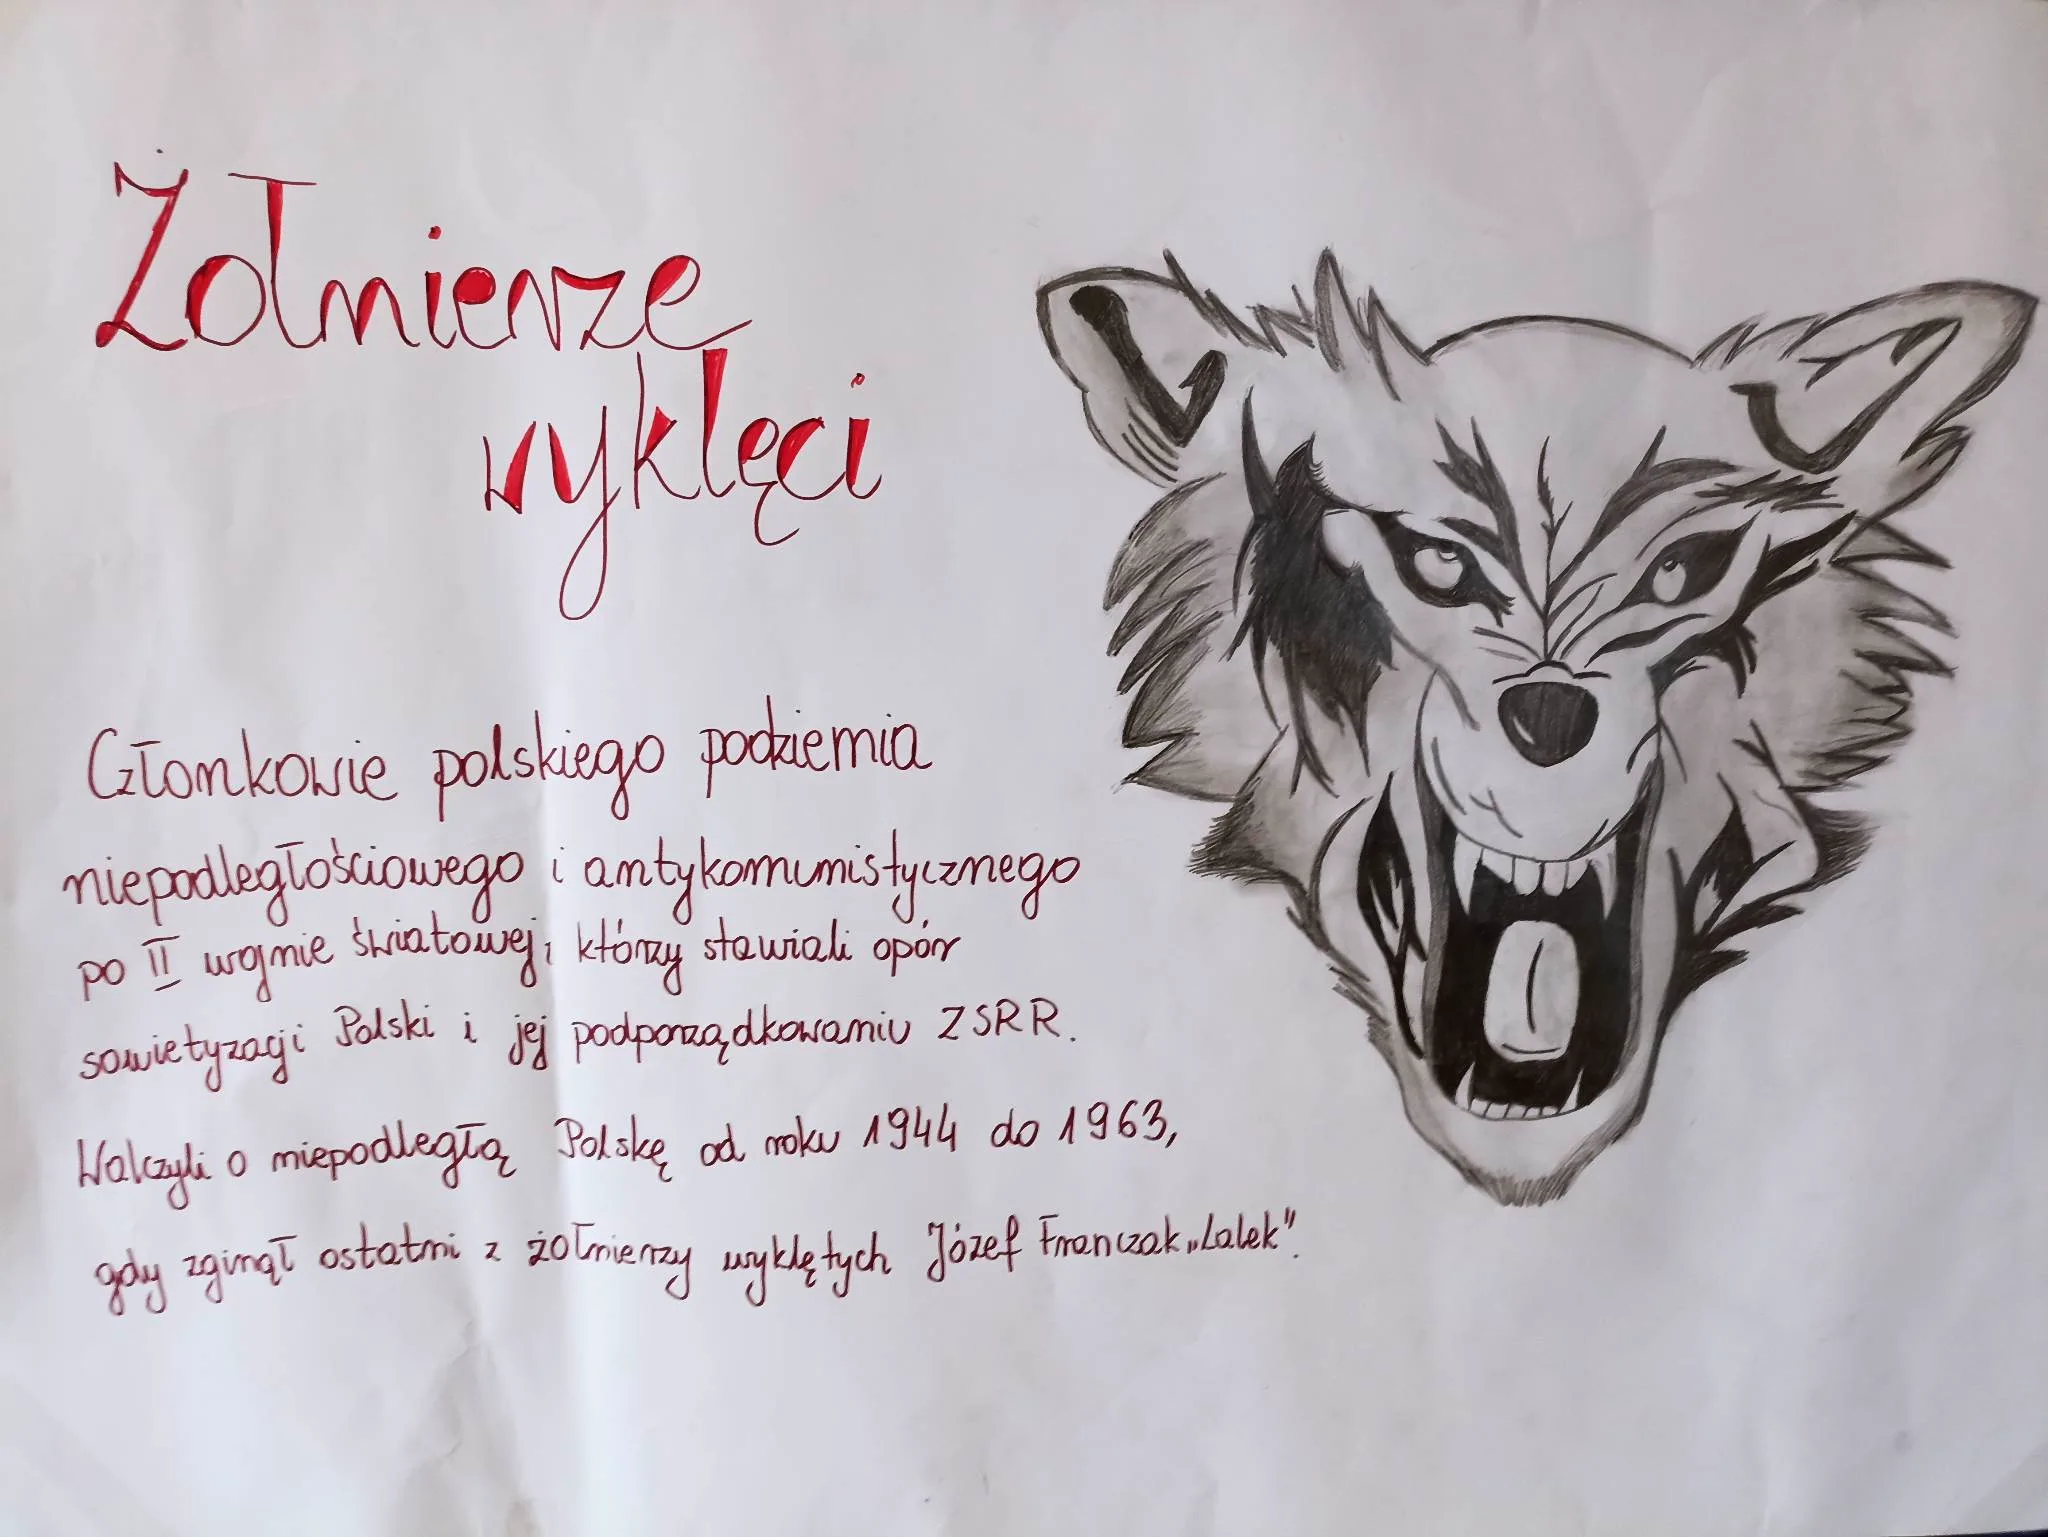 Żołnierze
wyklęci
Członkowie polskiego podziemia
niepodległościowego i antykomunistycznego
po II wojnie światowej, którzy stawiali opór
sowietyzacji Polski i jej podporządkowaniu ZSRR.
Walczyli o niepodległą Polskę od roku 1944 do 1963,
gdy zginął ostatni z żołnierzy wyklętych Józef Franczak „Lalek”.